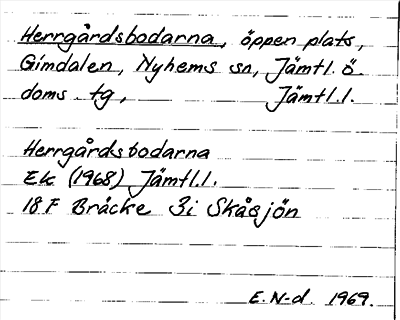 Herrgårdsbodarna, öppen plats,
Gimdalen, Nyhems sn, Jämtl. ö.
doms. tg, Jämtl.l.
Herrgårdsbodarna
Ek (1968) Jämtl.l.
18F Bräcke 3i Skåsjön
E.N-d. 1969.